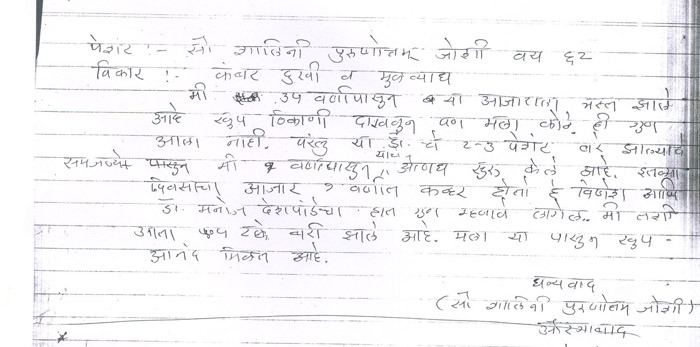 पेशंट :- सौ शालिनी पुरुषोत्तम जोशी वय ६२
विकार :- कंबर दुखी व मुळव्याध
मी ३५ वर्षापासुन या आजारात त्रस्त झाले
आहे खुप ठिकाणी दाखवुन पण मला कोठे ही गुण
आला नाही. परंतु या डॉ. चे २-३ पेशंट बरे झाल्याचे
समजल्या पासुन मी १ वर्षापासुन याचे औषध सुरु केले आहे. इतक्या
दिवसाचा आजार १ वर्षात कव्हर होतो हे विशेश आणि
डॉ. मनोज देशपांडेचा हात गुण म्हणावे लागेल. मी तशी
आता ७५ टक्के बरी झाले आहे. मला या पासुन खुप -
आनंद मिळत आहे.
धन्यवाद
(सौ शालिनी पुरुषोत्तम जोशी)
औरंगाबाद